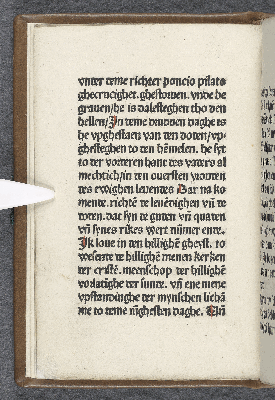 vnter teme richter poncio pilato
ghecrucighet. ghestoruen. vnde be
grauen/he is dalesteghen tho den
hellen/In teme drudden daghe is
he vpghestaen van ten doten/vp-
ghestegħen to ten hēmelen. he syt
to ter vorteren hant tes vateres al
mechtich/in ten ouersten vrouten
tes ewighen leuentes Dar na ko
mente. richtē te leuēdighen vn̄ te
toten. dat syn te guten vn̄ quaten
vn̄ synes rikes wert nūmer ente.
Ik loue in ten hillighē gheyst. to
wesente te hillighē menen kerken
ter cristē. meenschop ter hillighē
vorlatīghe ter sunte. vn̄ ene mene
vpstandinghe ter mynschen lichā
me to teme iūghesten daghe. Vn̄